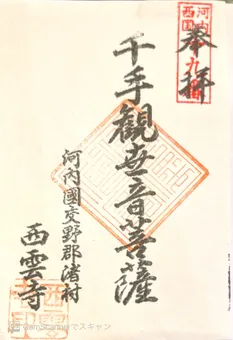 奉拝
河内
西国
千手観世音菩薩
河内國交野郡渚村
西雲寺
CamScanner でスキャン